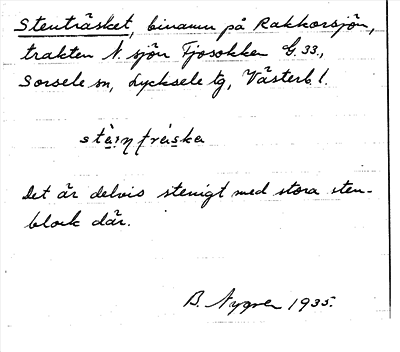 Stenträsket, binamn på Rakkorsjön,
trakten N. sjön Tjosokken G. 33.,
Sorsele sn, Lycksele tg, Västerb l.
Det är delvis stenigt med stora sten-
block där.
B. Nygren 1935.